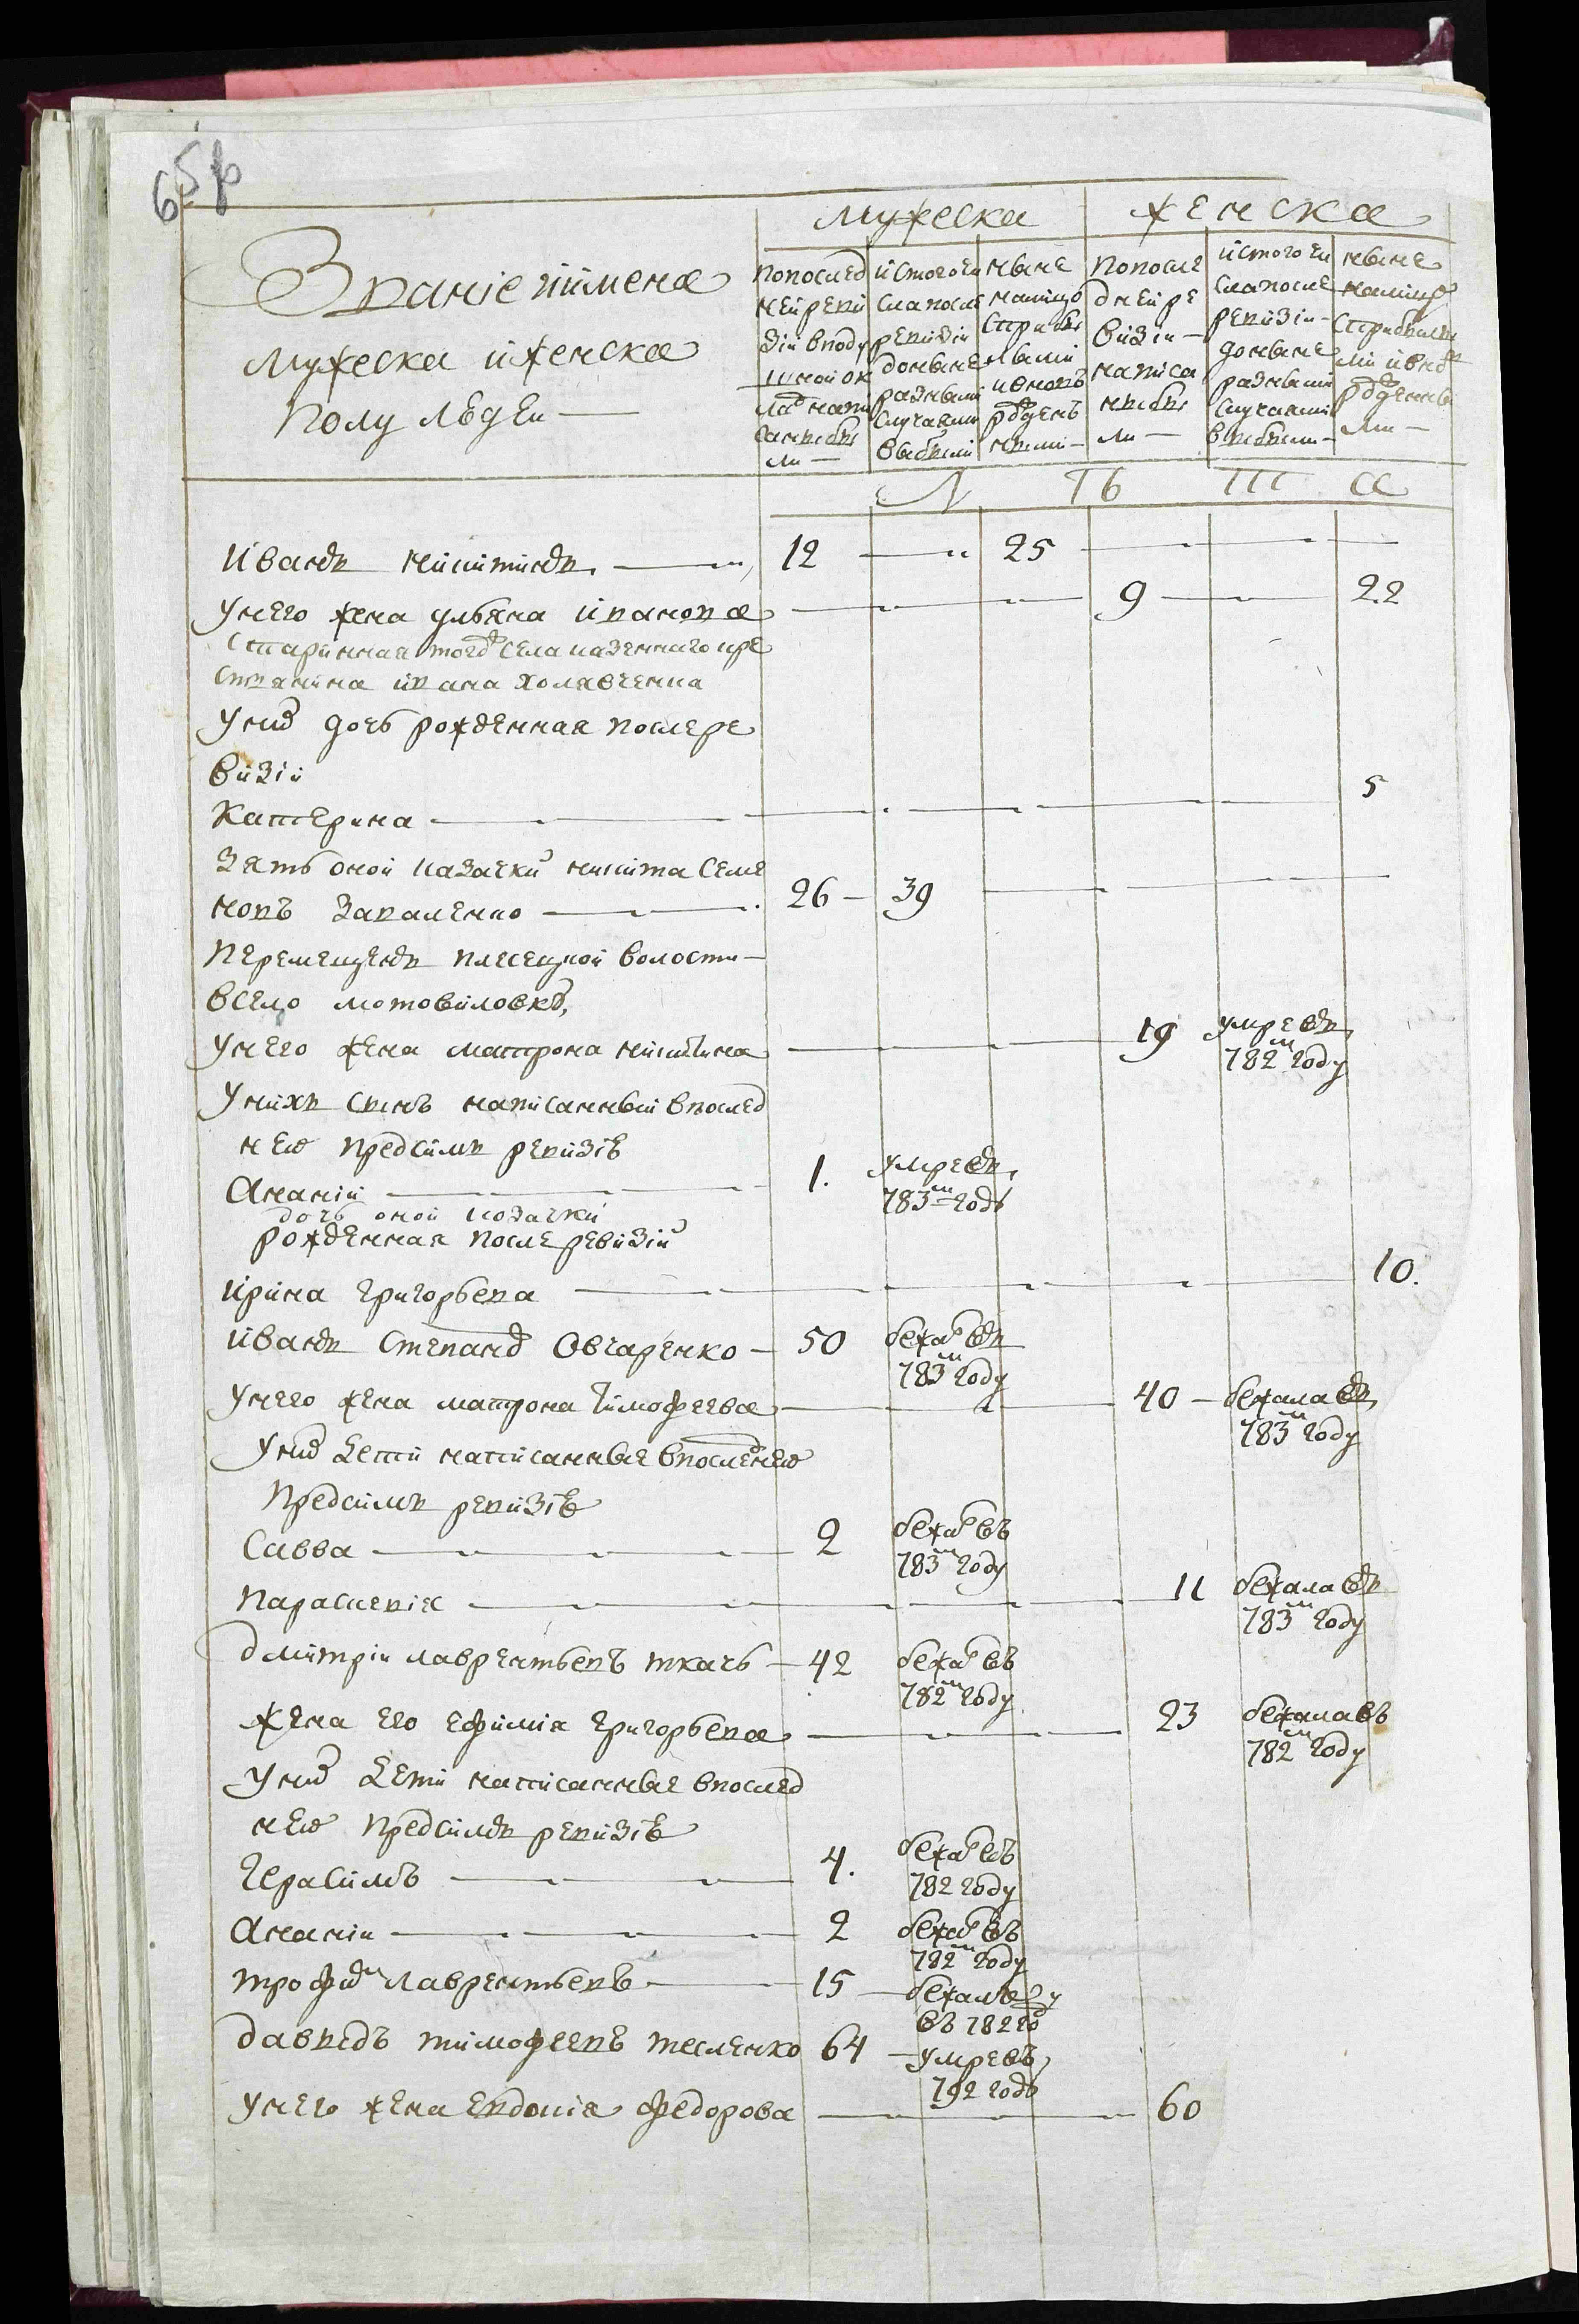 65
Мужеска Женска
Званіе иимена
Мужеска иженска
полу людеи
попослед
неи реви
зіи вподу
шнои ок
лад напи
санныхъ
ли
истого чи
сла после
ревизіи
доныне
разными
случаями
выбыли
ныне
налицо
стрибы
лыми
ивновь
рожден
ными
попосле
днеи ре
визіи
написа
нныхъ
ли
истого чи
сла после
ревизіи
доныне
разными
случаями
выбыли
ныне
налицо
стрибылы
ми ивнов
рожденны
ми
Л Ѣ Т А
Иванъ никитинъ 12 25
унего жена ульяна иванова 9 22
старинная тогож села казенного кре
стянина ивана холявченка
уних дочь рожденная послере
визіи
Катерина 5
Зять оной казачки никита семе
новъ Заваленко 26 39
перемещенъ плесецкой волости
всело мотовиловку
унего жена матрона никитина 19 умре въ
782м году
унихъ сынъ написанный впослед
нею предсимъ ревизію
Ананіи 1. умре въ
783м годѣ
дочь оной козачки
рожденная после ревизіи
ирина григорьева 10.
иванъ степанов Овчаренко 50 бежал въ
783м году
унего жена матрона тимофеева 40 бежала въ
783м году
уних дети написанные впоследнею
предсимъ ревизію
Савва 2 бежал въ
783м году
параскевія 11 бежала въ
783м году
дмитріи лаврентьевъ ткачь 42 бежал въ
782м году
жена его ефимія григорьева 23 бежала въ
782м году
уних дети написанные впослед
нею предсимъ ревизію
Герасимъ 4. бежал въ
782 году
Ананіи 2 бежал въ
782м году
трофим лаврентьевъ 15 бежалъ
въ 782 году
давыдъ тимофеевъ тесленко 64 умре въ
792 годѣ
унего жена евдокія федорова 60